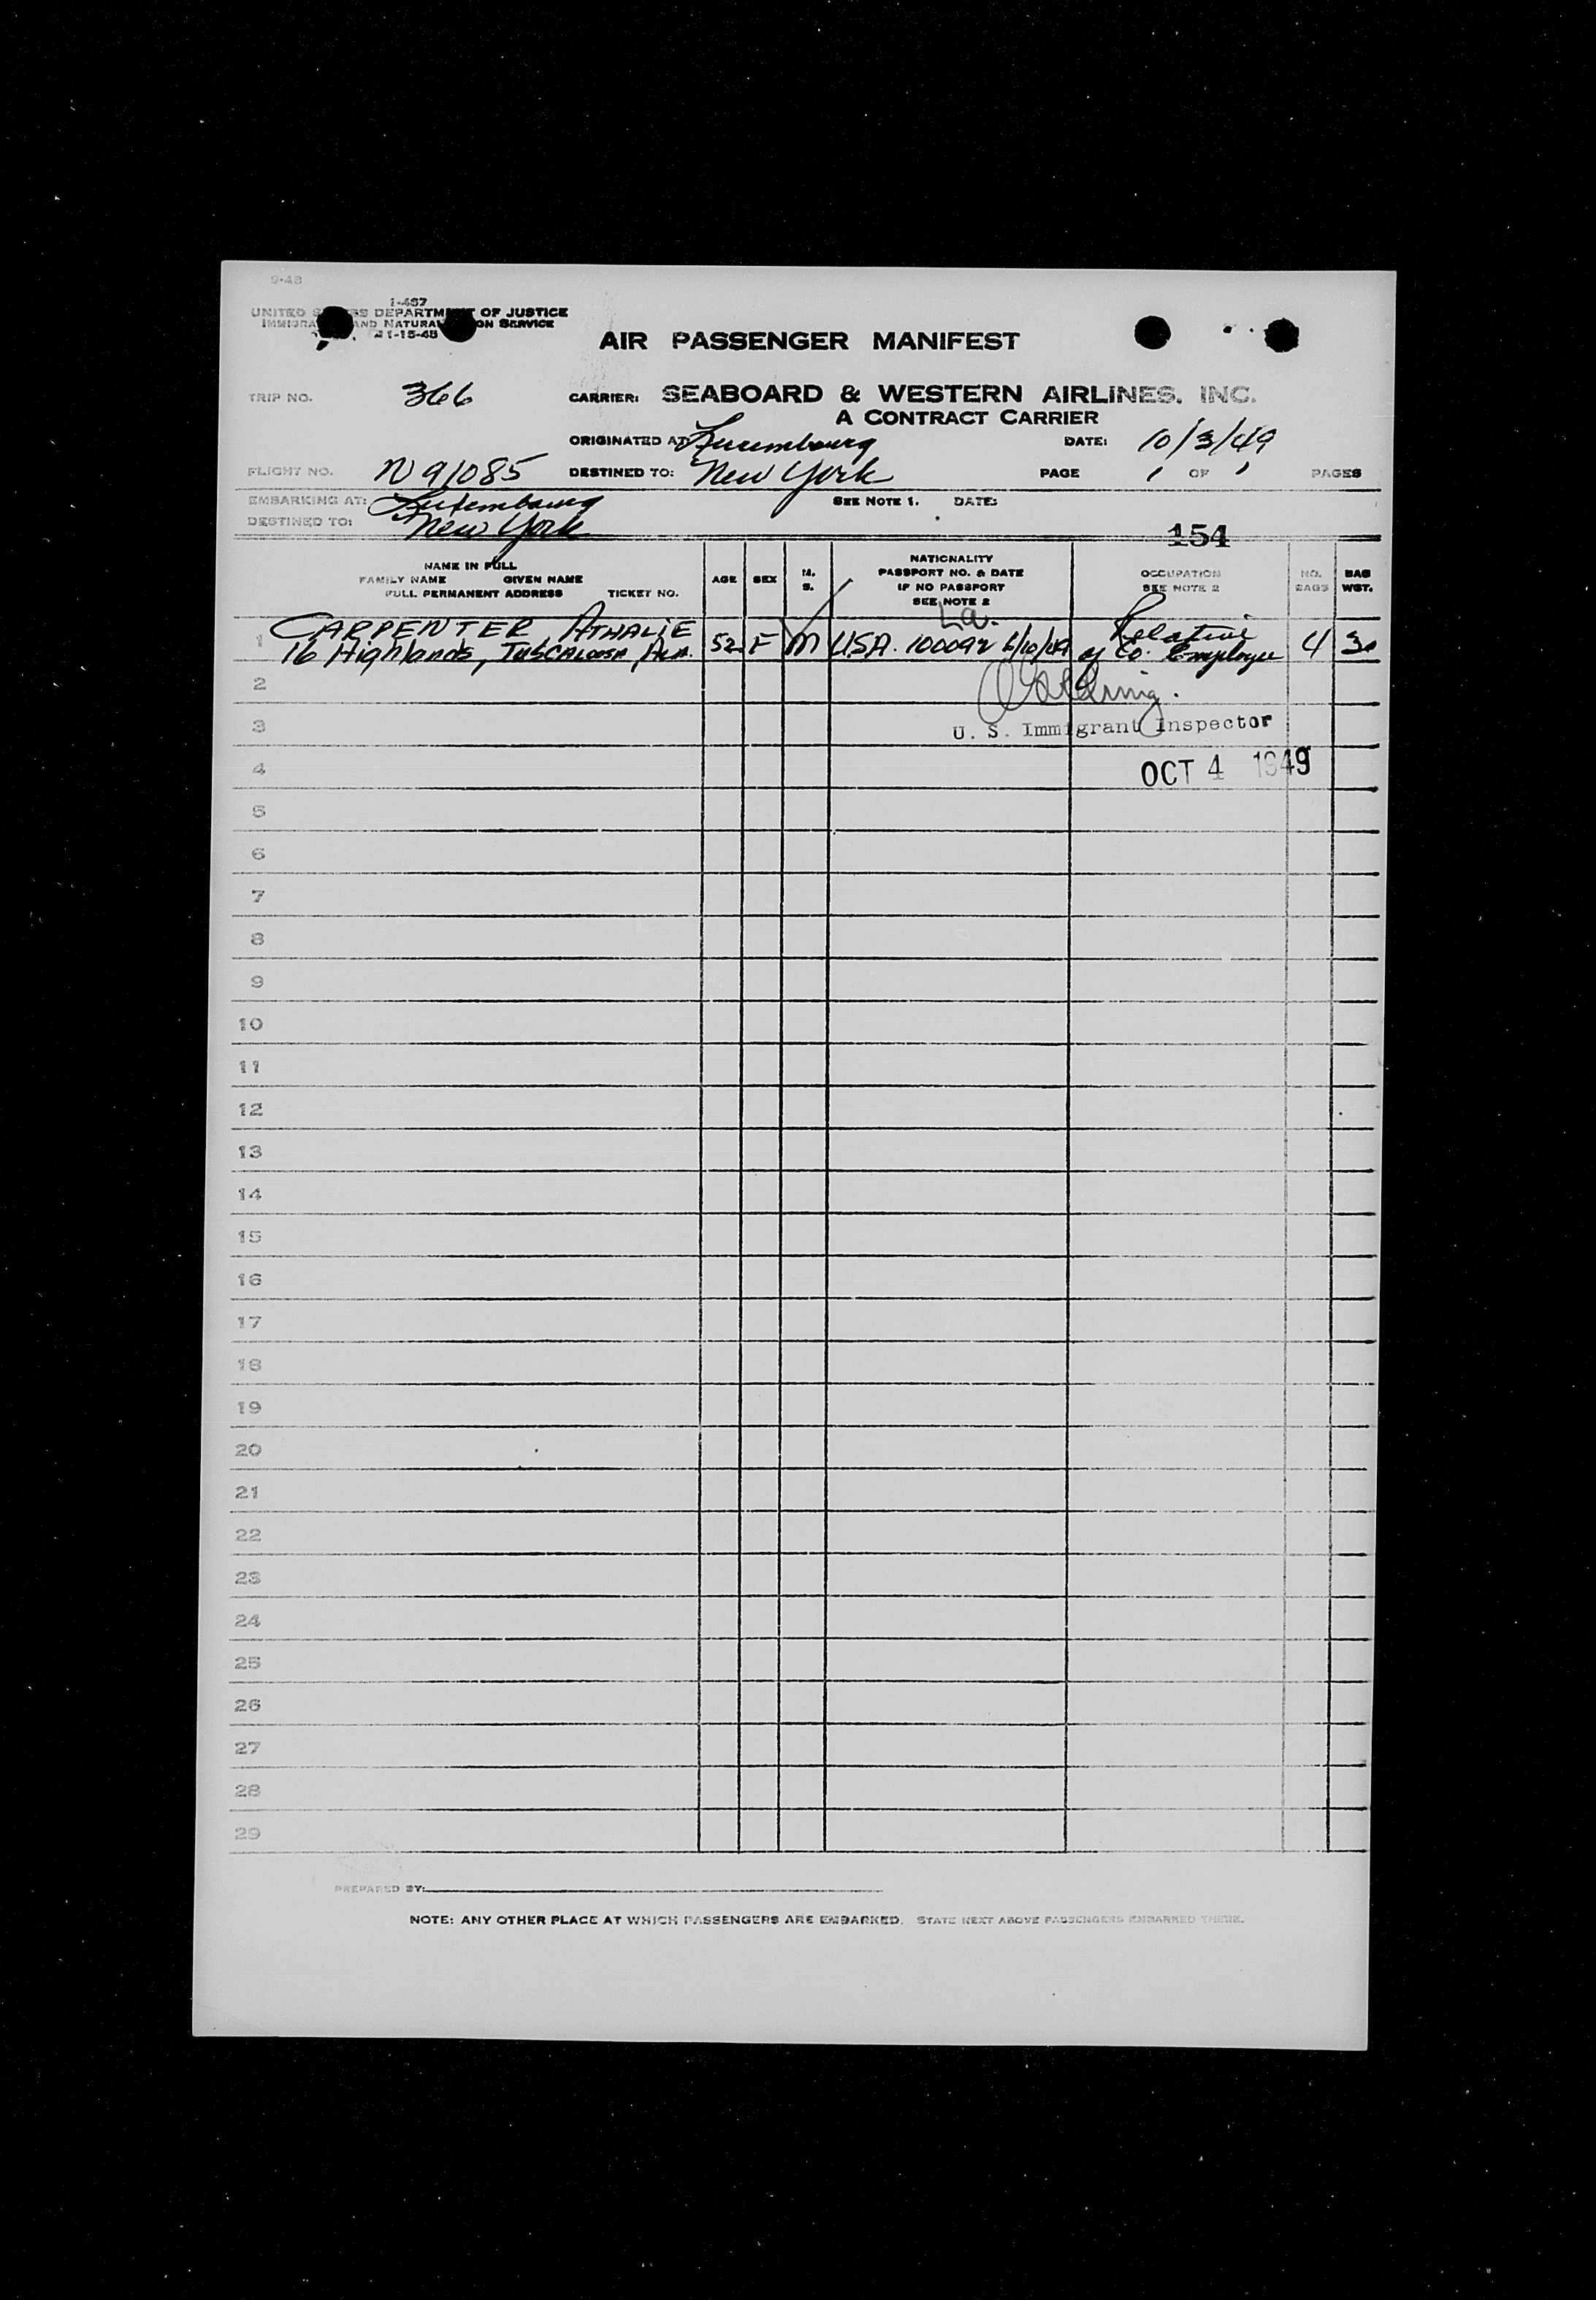 9-48
I-467
UNITED S ES DEPARTM OF JUSTICE
IMMIGRA AND NATURA ON SERVICE
1-15-48
AIR PASSENGER MANIFEST
TRIP NO. 366 CARRIER: SEABOARD & WESTERN AIRLINES, INC.
A CONTRACT CARRIER
ORIGINATED AT: Luxembourg DATE: 10/3/49
FLIGHT NO. N 91085 DESTINED TO: New York PAGE 1 OF 1 PAGES
EMBARKING AT: Luxembourg SEE NOTE 1. DATE:
DESTINED TO: New York
154
NAME IN FULL
FAMILY NAME GIVEN NAME
FULL PERMANENT ADDRESS TICKET NO.
AGE
SEX
M.
S.
NATIONALITY
PASSPORT NO. & DATE
IF NO PASSPORT
SEE NOTE 2
OCCUPATION
SEE NOTE 2
NO.
BAGS
BAG
WGT.
1 CARPENTER ATHALIE
16 Highlands, TUSCALOOSA, ALA. 52 F M USA. 100092 6/10/49 Relative
of Co. Employee 4 30
2
3 U. S. Immigrant Inspector
4 OCT 4 1949
5
6
7
8
9
10
11
12
13
14
15
16
17
18
19
20
21
22
23
24
25
26
27
28
29
PREPARED BY:
NOTE: ANY OTHER PLACE AT WHICH PASSENGERS ARE EMBARKED. STATE NEXT ABOVE PASSENGERS EMBARKED THERE.